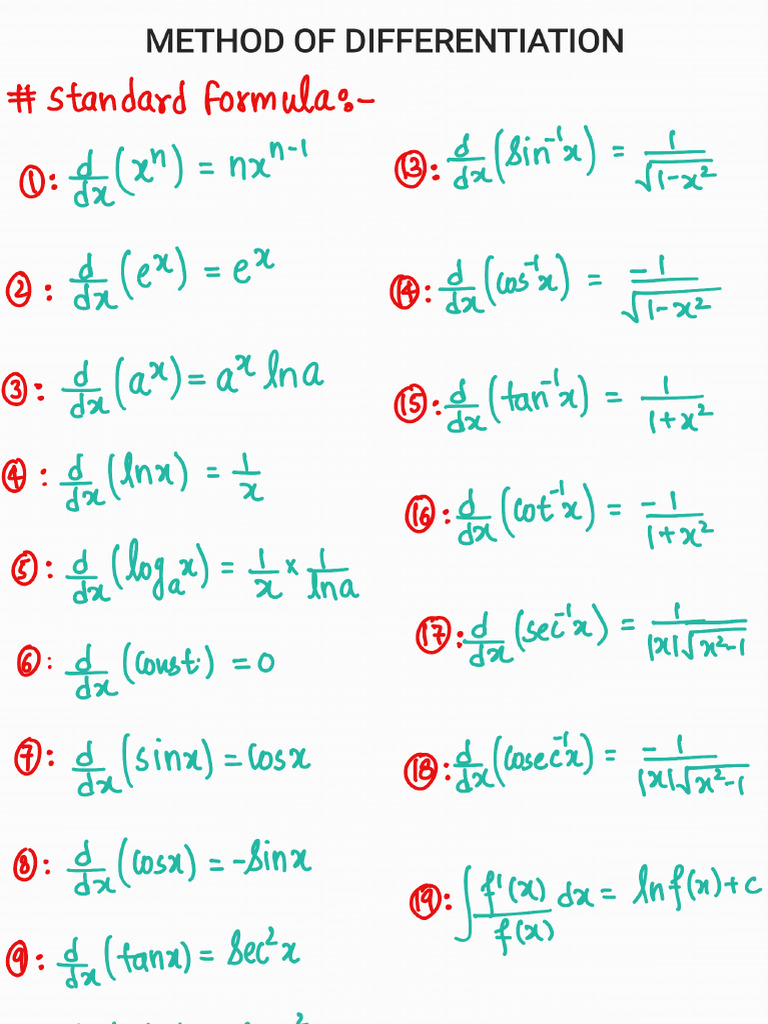 METHOD OF DIFFERENTIATION
# Standard formula:-
①: d/dx (xⁿ) = nxⁿ⁻¹
②: d/dx (eˣ) = eˣ
③: d/dx (aˣ) = aˣ ln a
④: d/dx (lnx) = 1/x
⑤: d/dx (logₐx) = 1/x × 1/lna
⑥: d/dx (const.) = 0
⑦: d/dx (sinx) = cosx
⑧: d/dx (cosx) = -sinx
⑨: d/dx (tanx) = sec²x
⑬: d/dx (sin⁻¹x) = 1/√(1-x²)
⑭: d/dx (cos⁻¹x) = -1/√(1-x²)
⑮: d/dx (tan⁻¹x) = 1/(1+x²)
⑯: d/dx (cot⁻¹x) = -1/(1+x²)
⑰: d/dx (sec⁻¹x) = 1/(|x|√(x²-1))
⑱: d/dx (cosec⁻¹x) = -1/(|x|√(x²-1))
⑲: ∫ f'(x)/f(x) dx = ln f(x) + c